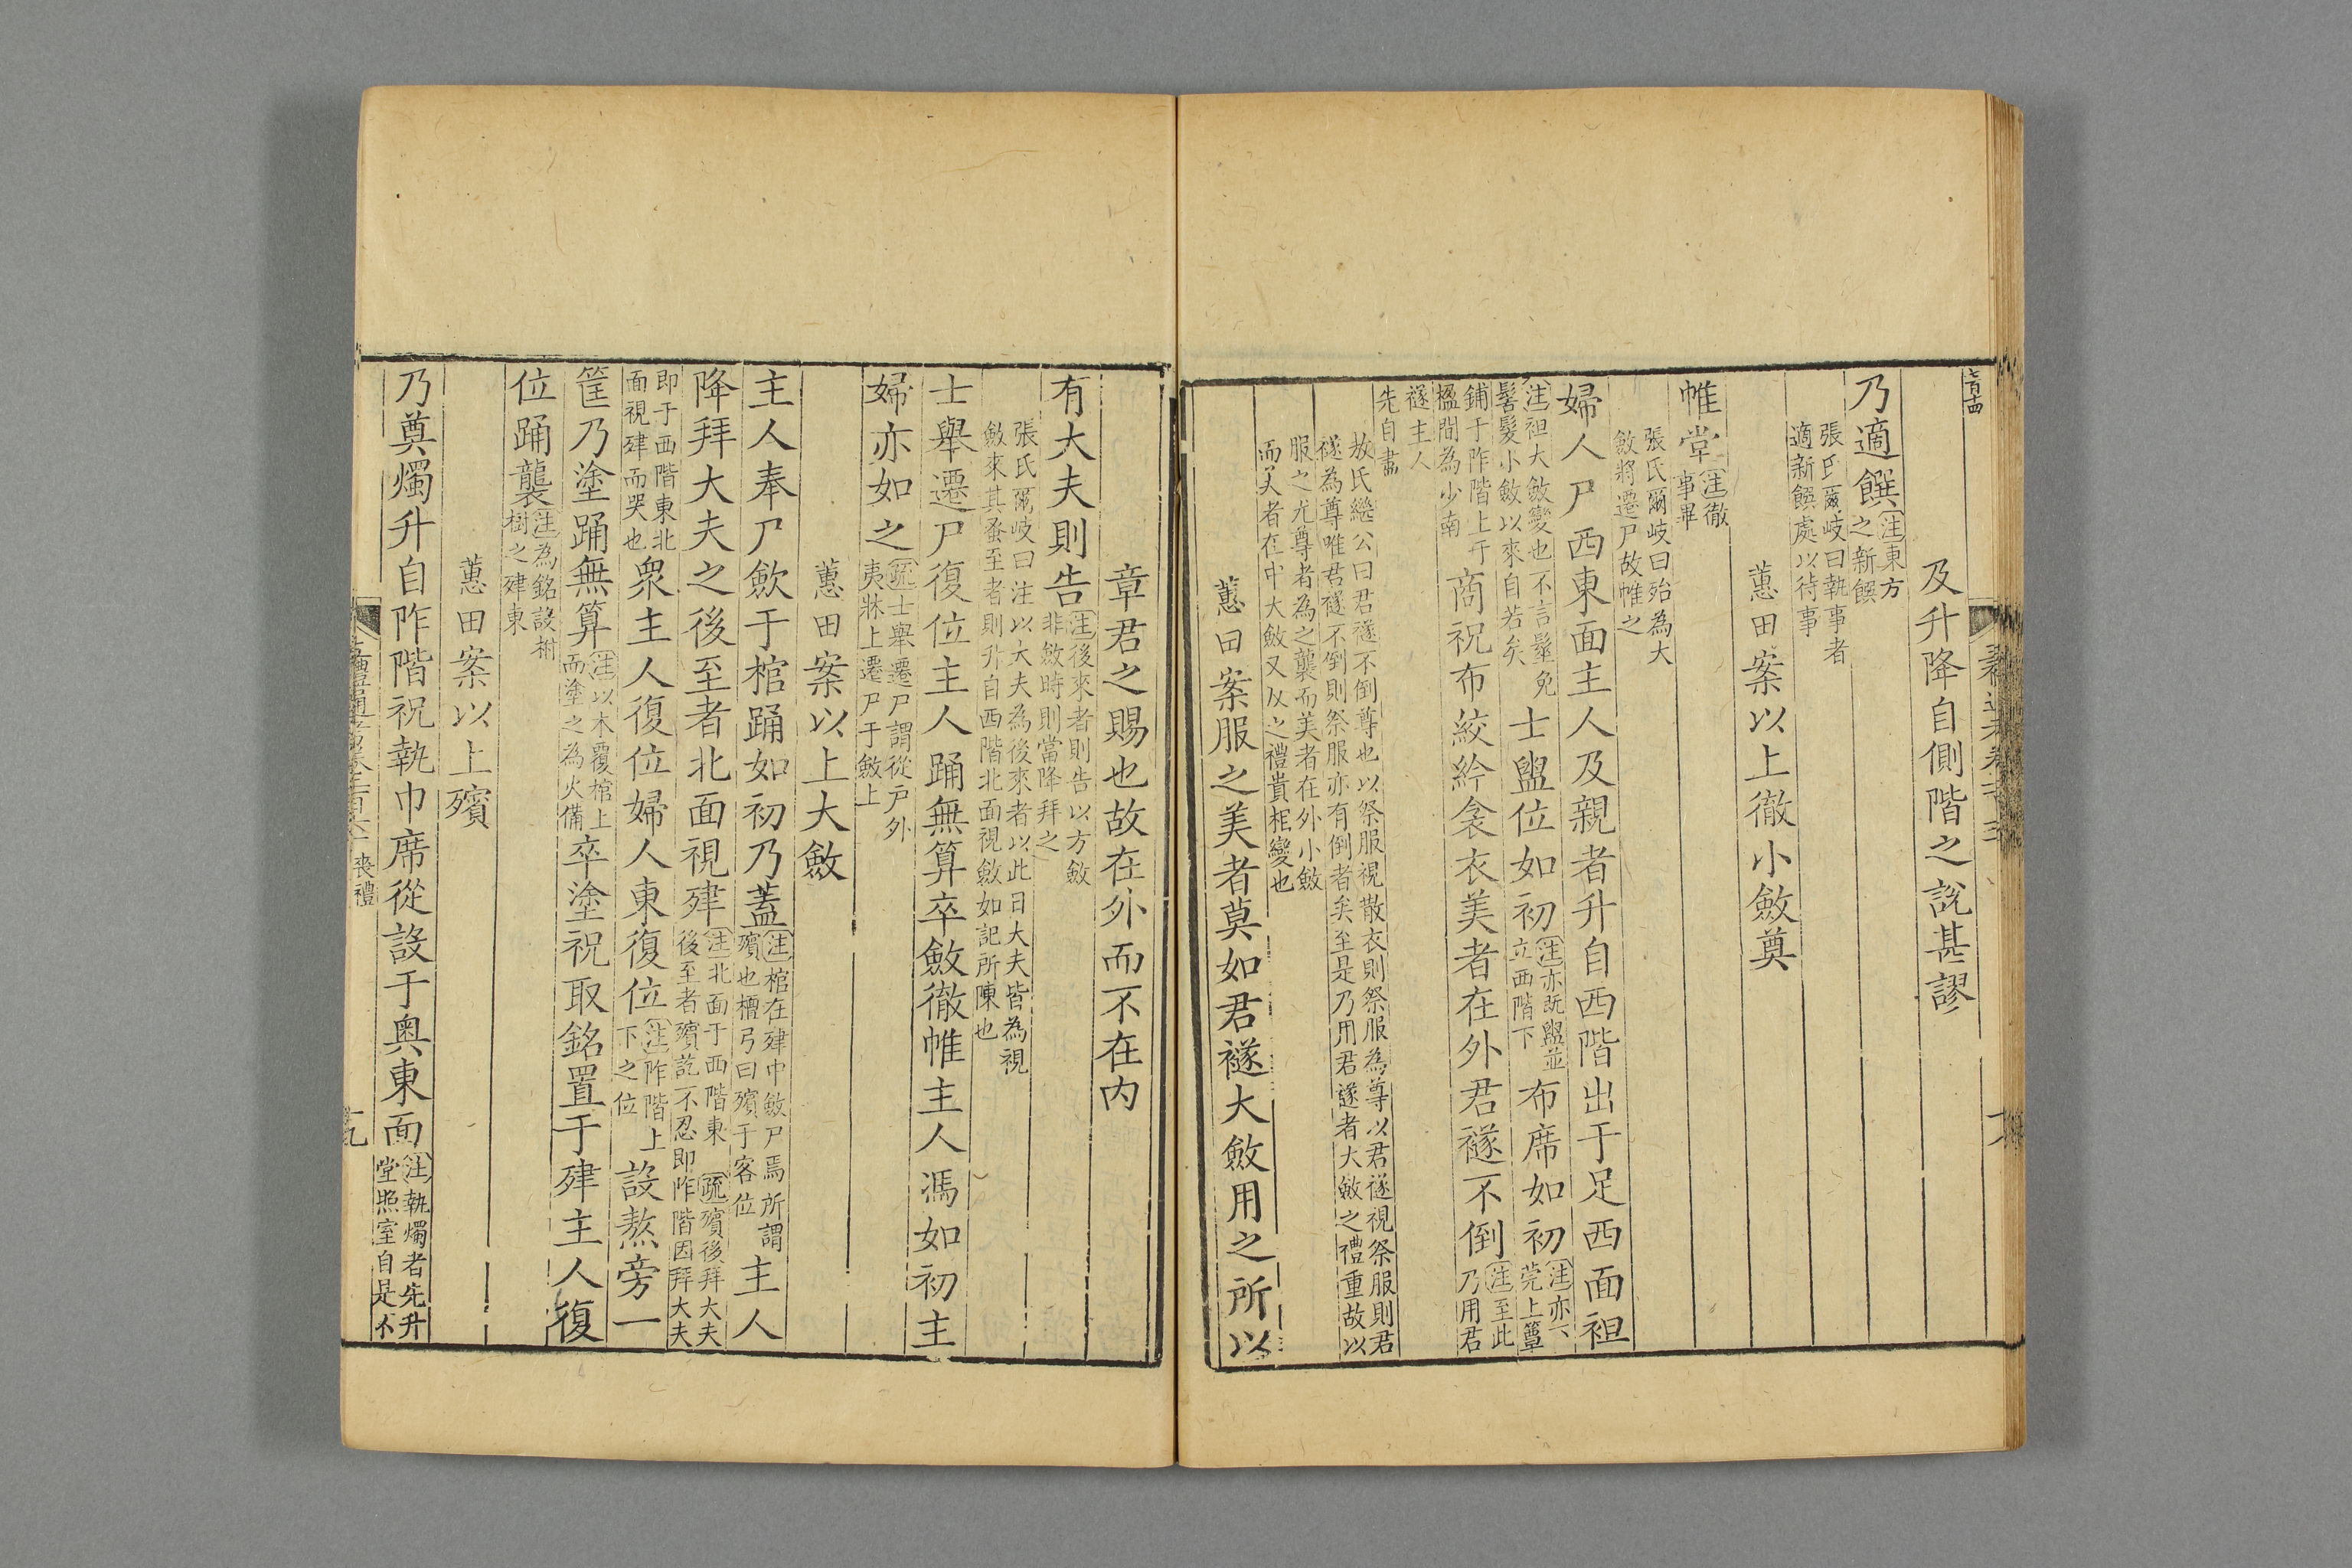 及升降自側階之說甚謬
乃適饌注東方之新饌
張氏爾岐曰執事者適新饌處以待事
蕙田案以上徹小斂奠
帷堂注徹事畢
張氏爾岐曰殆為大斂將遷尸故帷之
婦人尸西東面主人及親者升自西階出于足西面袒
注袒大斂變也不言髽免髺髮小斂以來自若矣士盥位如初注亦既盥並立西階下布席如初注亦下莞上簟
鋪于阼階上于楹間為少南商祝布絞紟衾衣美者在外君襚不倒注至此乃用君
襚主人先自盡
敖氏繼公曰君襚不倒尊也以祭服視散衣則祭服為尊以君襚視祭服則君
襚為尊唯君襚不倒則祭服亦有倒者矣至是乃用君襚者大斂之禮重故以
服之尤尊者為之襲而美者在外小斂而美者在中大斂又反之禮貴相變也
蕙田案服之美者莫如君襚大斂用之所以
章君之賜也故在外而不在内
有大夫則告注後來者則告以方斂非斂時則當降拜之
張氏爾岐曰注以大夫為後來者以此日大夫皆為視
斂來其蚤至者則升自西階北面視斂如記所陳也
士舉遷尸復位主人踊無算卒斂徹帷主人馮如初主
婦亦如之疏士舉遷尸謂從戶外夷牀上遷尸于斂上
蕙田案以上大斂
主人奉尸斂于棺踊如初乃蓋注棺在肂中斂尸焉所謂殯也檀弓曰殯于客位主人
降拜大夫之後至者北面視肂注北面于西階東疏殯後拜大夫後至者殯訖不忍即阼階因拜大夫
即于西階東北面視肂而哭也眾主人復位婦人東復位注阼階上下之位設熬旁一
筐乃塗踊無算注以木覆棺上而塗之為火備卒塗祝取銘置于肂主人復
位踊襲注為銘設柎樹之肂東
蕙田案以上殯
乃奠燭升自阼階祝執巾席從設于奥東面注執燭者先升堂照室自是不
喪禮